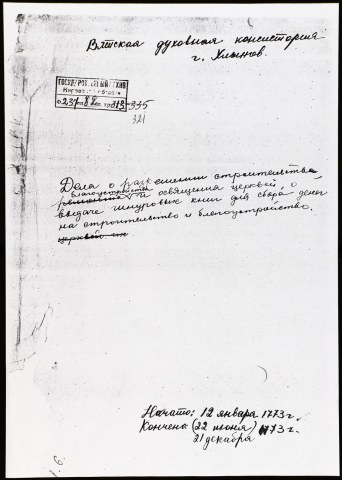 Вятская духовная консистория
г. Хлынов.
ГОСУДАРСТВЕННЫЙ АРХИВ
Кировской области
Ф. 237 оп. 82 ед. хр. 313-335
321
Дела о разрешении строительства
благоустройства
ремонта и освящения церквей, о
выдаче шнуровых книг для сбора денег
на строительство и благоустройство.
церквей
Начато: 12 января 1773 г.
Кончено (22 июня) 1773 г.
21 декабря